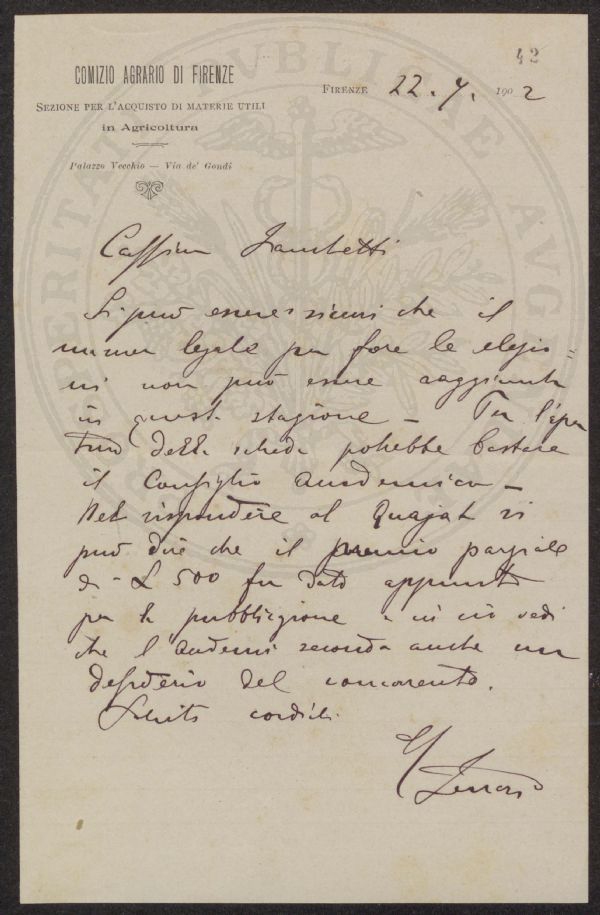 42
COMIZIO AGRARIO DI FIRENZE
SEZIONE PER L'ACQUISTO DI MATERIE UTILI
in Agricoltura
Palazzo Vecchio — Via de' Gondi
FIRENZE 22. 7. 1902
Si può essere sicuri che il
numero legale per fare le elezio=
ni non può essere raggiunto
in questa stagione — Per l'aper
tura della scheda potrebbe bastare
il Consiglio Accademico —
Nel rispondere al Quajat si
può dire che il premio parziale
di £ 500 fu dato appunto
per la pubblicazione
che l'Accademia seconda anche un
desiderio del concorrente.
Saluti cordiali